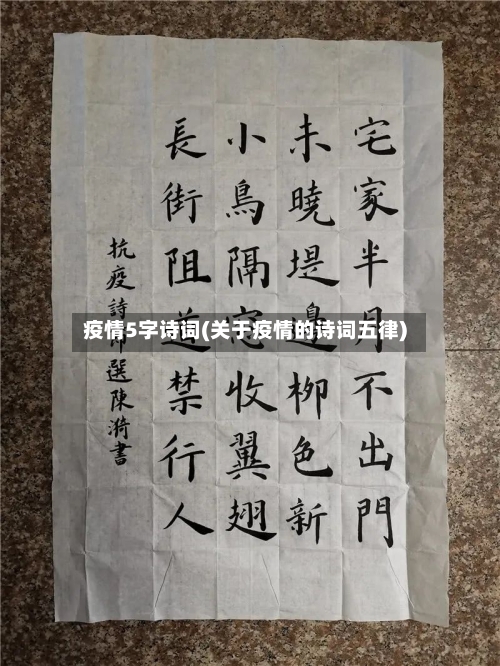 宅家半月不出門
未曉堤邊柳色新
小鳥隔窓收翼翅
長街阻道禁行人
抗疫詩選陳漪書
疫情5字诗词(关于疫情的诗词五律)